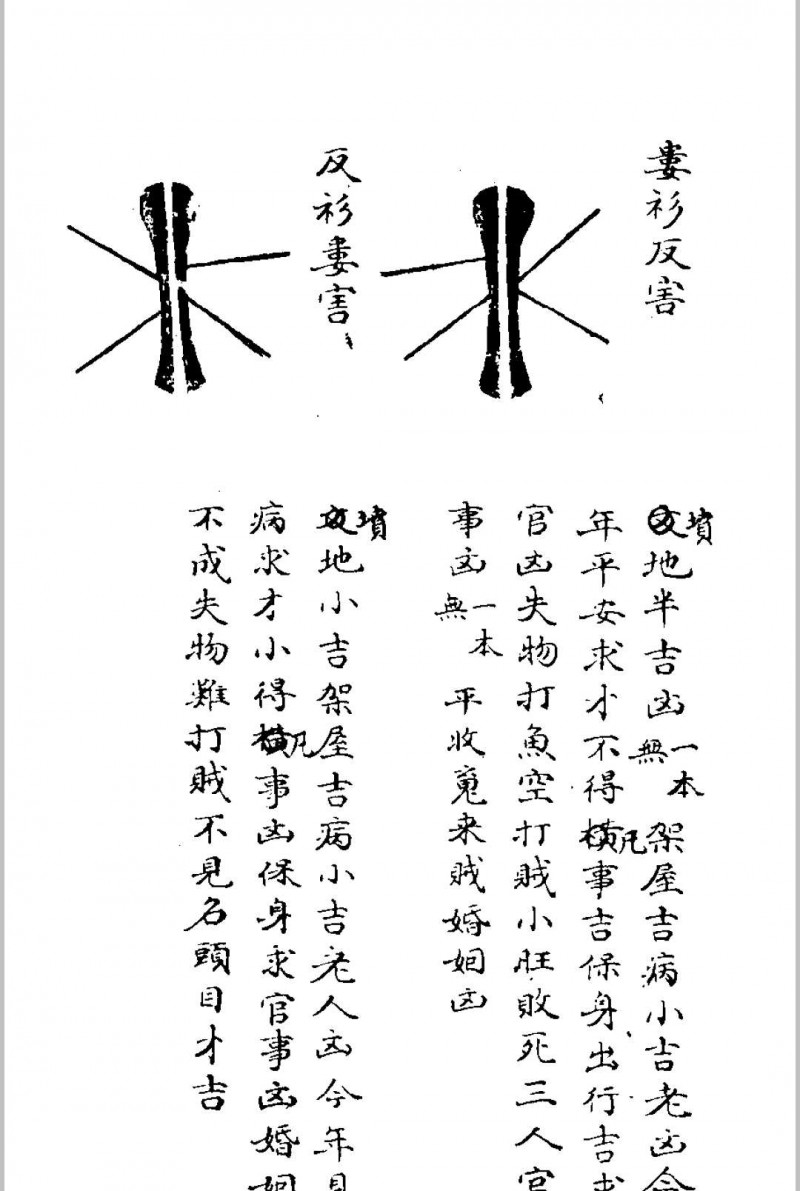 婁衫反害
墳地半吉凶一本無架屋吉病小吉老凶今
年平安求才不得橫凡事吉保身出行吉求
官凶失物打魚空打賊小旺敗死三人官
事凶一本無平收寬来賊婚姻凶
反衫婁害
墳地小吉架屋吉病小吉老人凶今年見
病求才小得橫凡事凶保身求官事凶婚姻
不成失物難打賊不見名頭目才吉